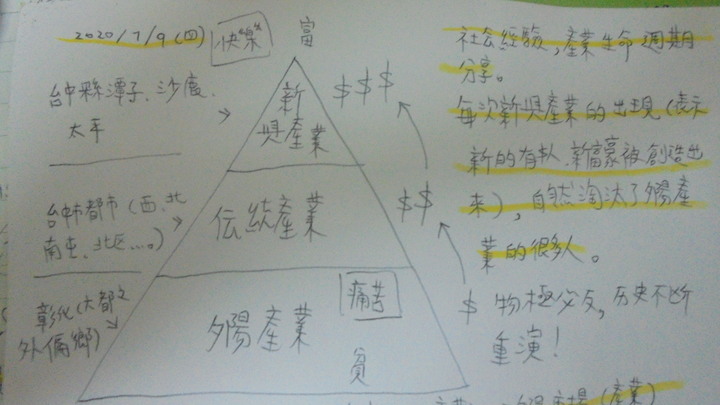 2020/7/9(四)
快樂
富
台中縣潭子、沙鹿、
太平
新
興產業
$$$
台中市都市(西、北
南屯、北區...。)
伝統產業
$$
彰化(大都之
外偏鄉)
夕陽產業
痛苦
貧
$
社会經驗,產業生命週期
分享。
每次新興產業的出現(表示
新的有執、新富豪被創造出
來),自然淘汰了夕陽產
業的很多人。
物極必反,历史不断
重演!
(產業)